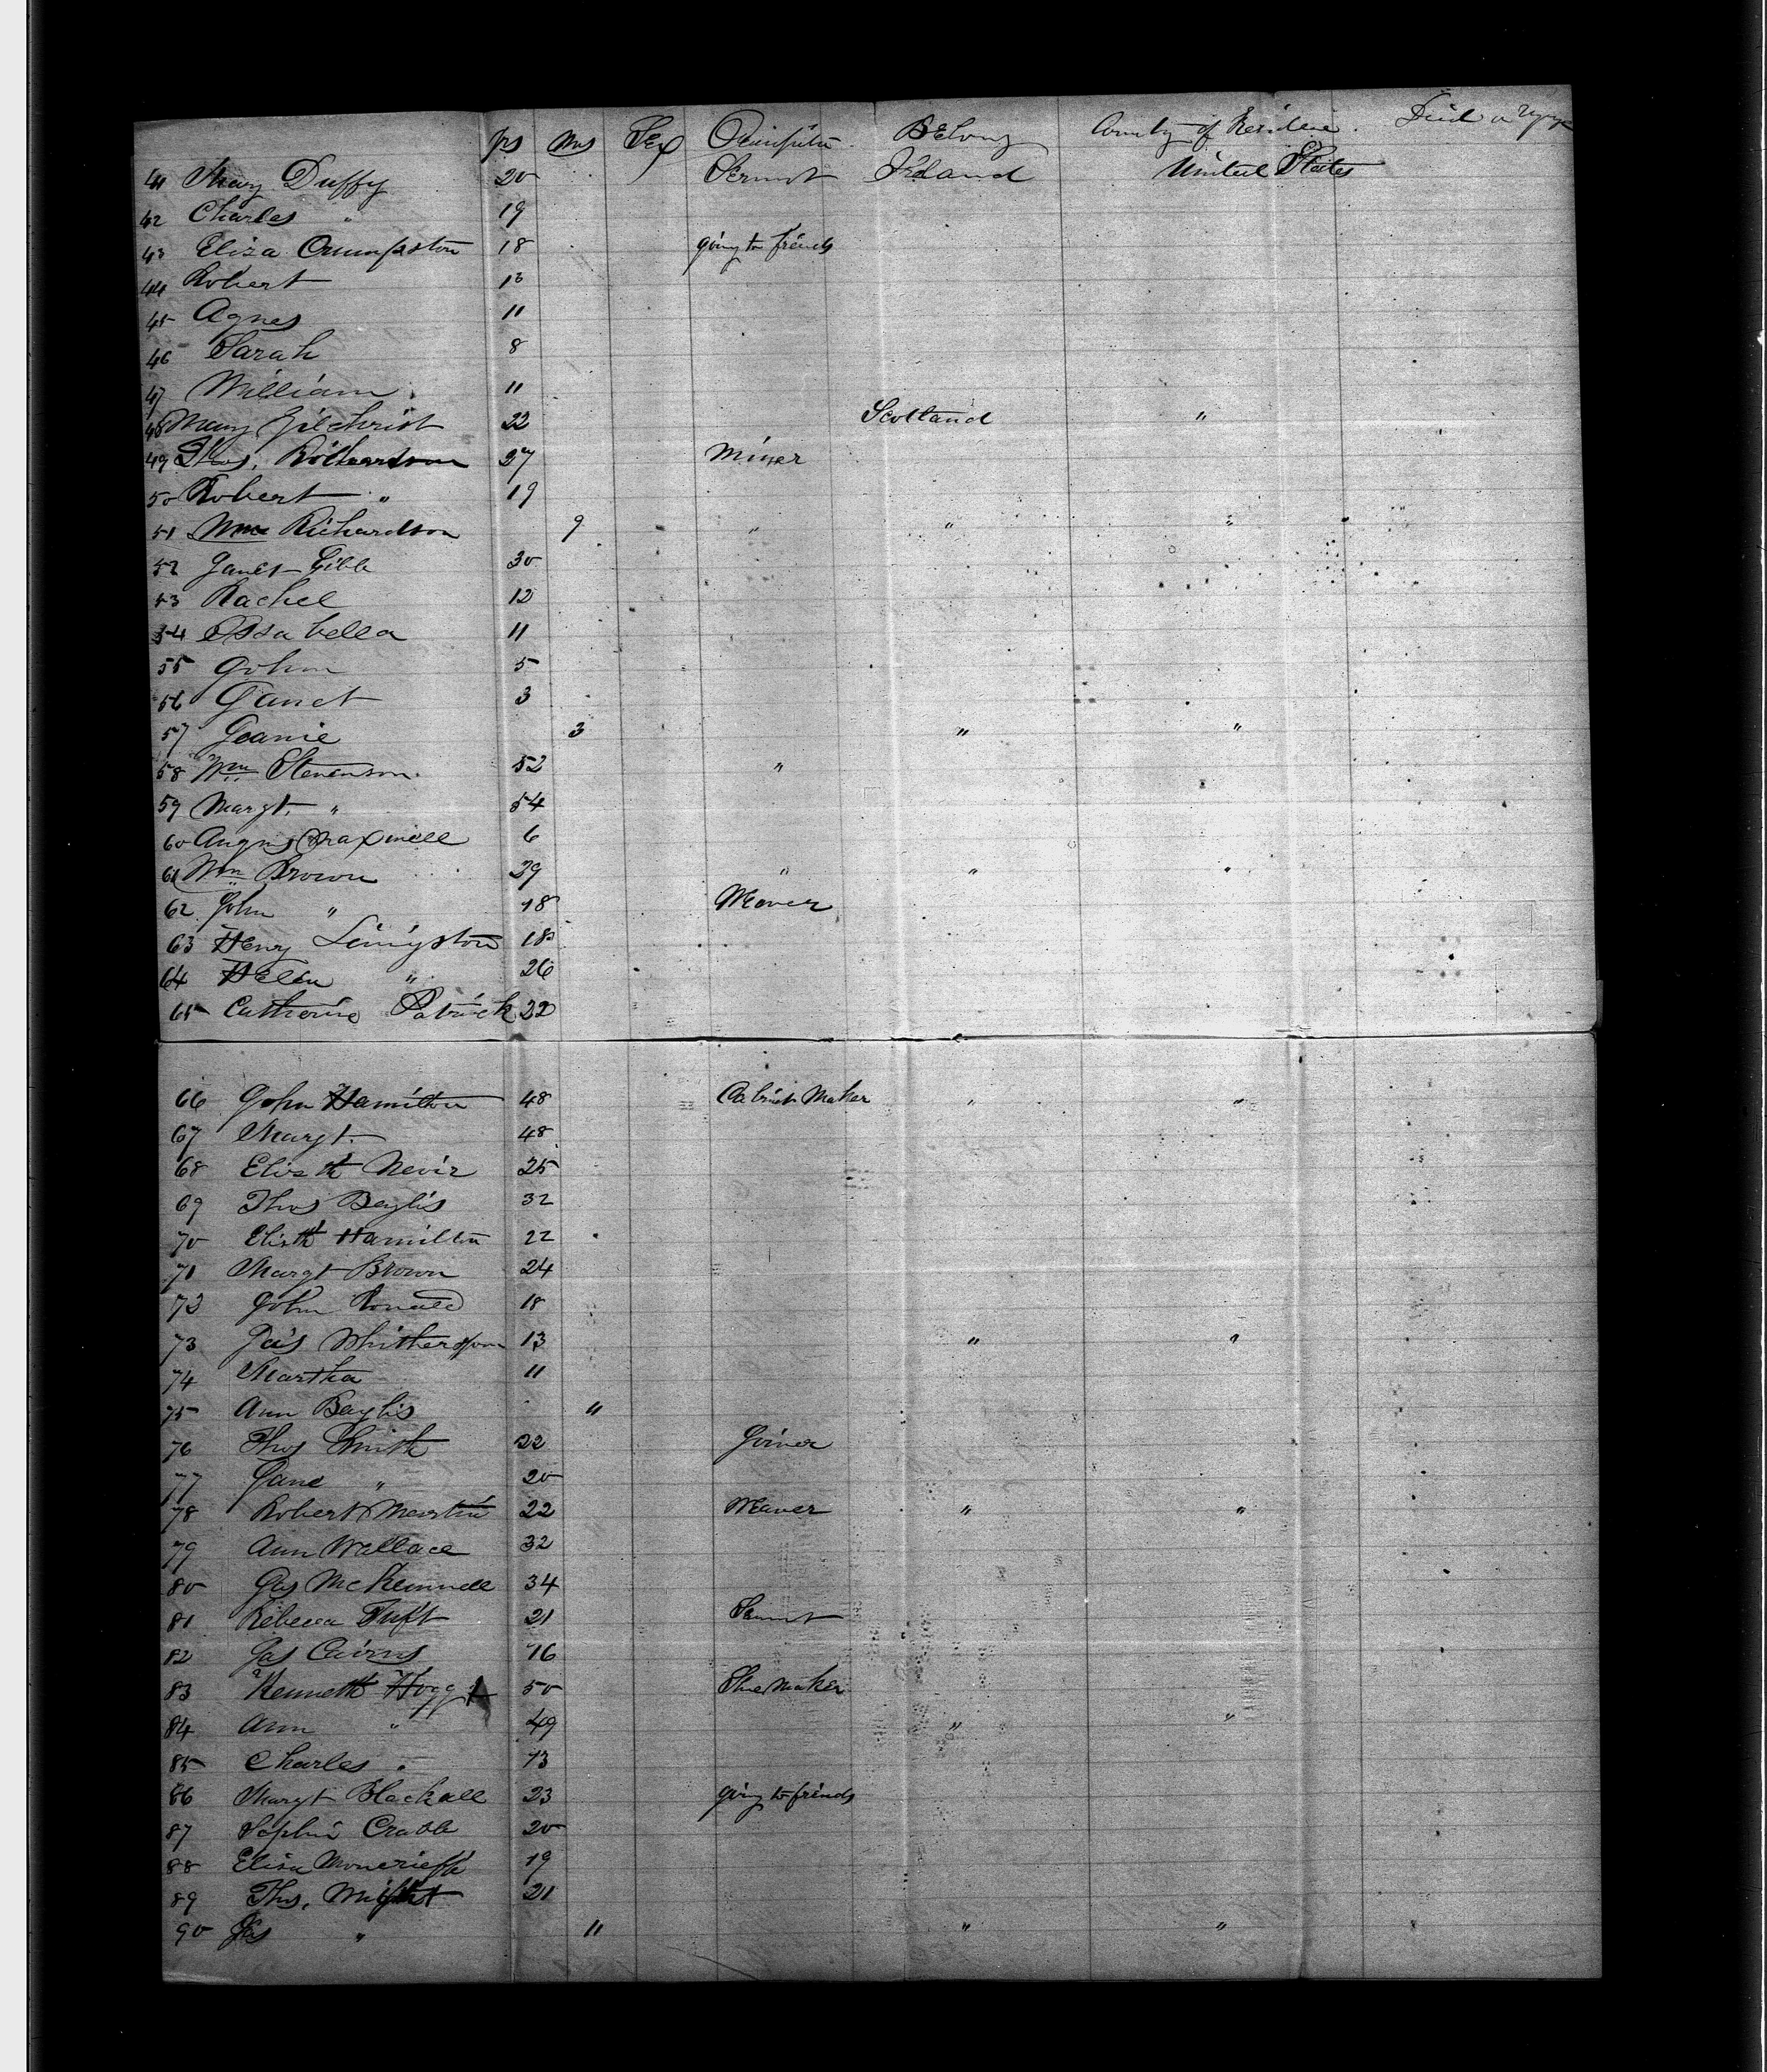 yrs Mos Sex Occupatn Belong Country of Residence Died on Voyage
41 Mary Duffy 20 Servant Ireland United States
42 Charles " 19
43 Eliza Crumpston 18 going to friends
44 Robert 13
45 Agnes 11
46 Sarah 8
47 William 11
48 Mary Gilchrist 22 Scotland "
49 Thos. Richardson 27 Miner
50 Robert " 19
51 Wm Richardson 9 " " "
52 Janet Gibb 30
53 Rachel 12
54 Issabella 11
55 John 5
56 Janet 3
57 Jeanie 3 " "
58 Wm Stevenson 52 "
59 Margt. " 54
60 Maxwell 6
61 Wm Brown 39 " " "
62 John " 18 Weaver
63 Henry Livingston 18
64 Helen " 26
65 Catherine Patrick 22
66 John Hamilton 48 Cabinet Maker " "
67 Margt 48
68 Elizth 25
69 Thos Baylis 32
70 Elizth Hamilton 22
71 Margt Brown 24
72 John Ronald 18
73 Jas Whitherspoon 13 " "
74 Martha 11
75 Ann Baylis 11
76 Thos Smith 22 Joiner
77 Jane " 20
78 Robert Martin 22 Weaver " "
79 Ann Wallace 32
80 Jas 34
81 Rebecca Tuft 21 Servant
82 Jas Cairns 16
83 Kenneth Hogg 50 Shoe Maker
84 Ann " 49 " "
85 Charles " 13
86 Margt Blackall 23 going to friends
87 Sophia Crabb 20
88 Elisa Moncrieff 19
89 Thos. 21
90 Jas " 11 " "